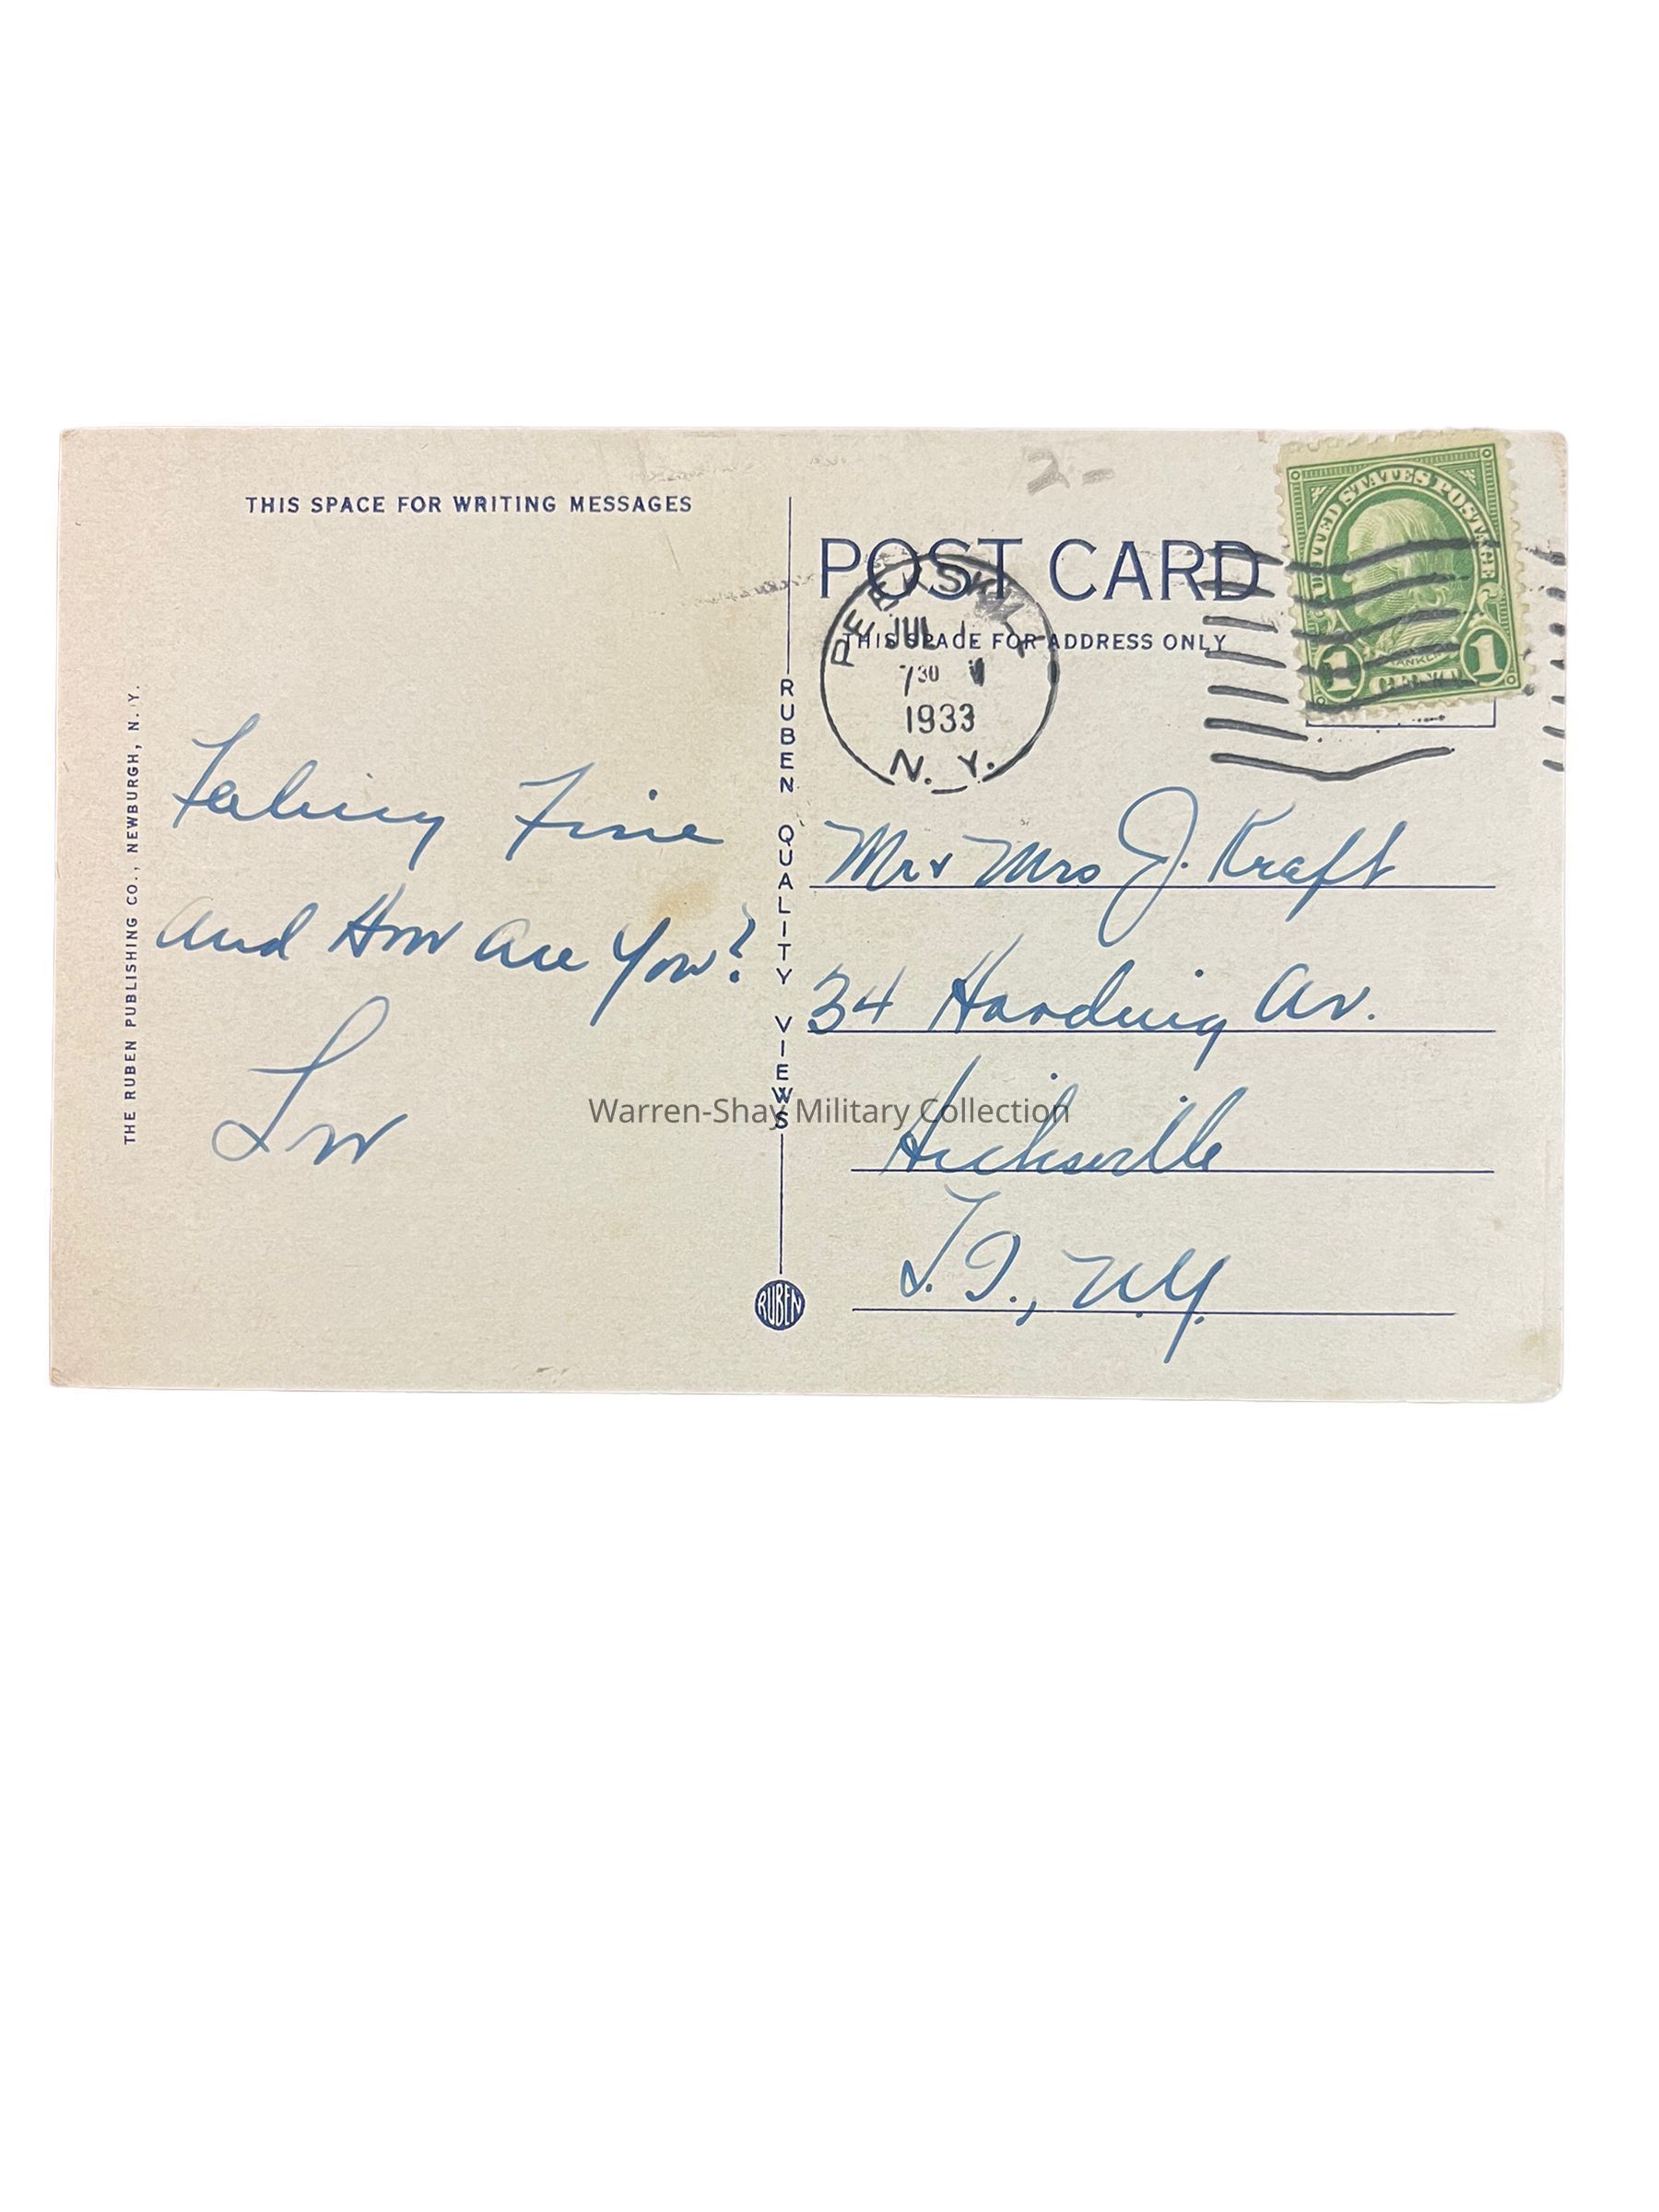 2-
THIS SPACE FOR WRITING MESSAGES
POST CARD
THIS SPACE FOR ADDRESS ONLY
UNITED STATES POSTAGE
FRANKLIN
1 1
PEEKSKILL
JUL 1
7 30
1933
N. Y.
THE RUBEN PUBLISHING CO., NEWBURGH, N. Y.
RUBEN QUALITY VIEWS
RUBEN
Feeling Fine
and How are You?
Mr & Mrs J. Kraft
34 Harding Av.
Hicksville
L.I., N.Y.
Warren-Shay Military Collection